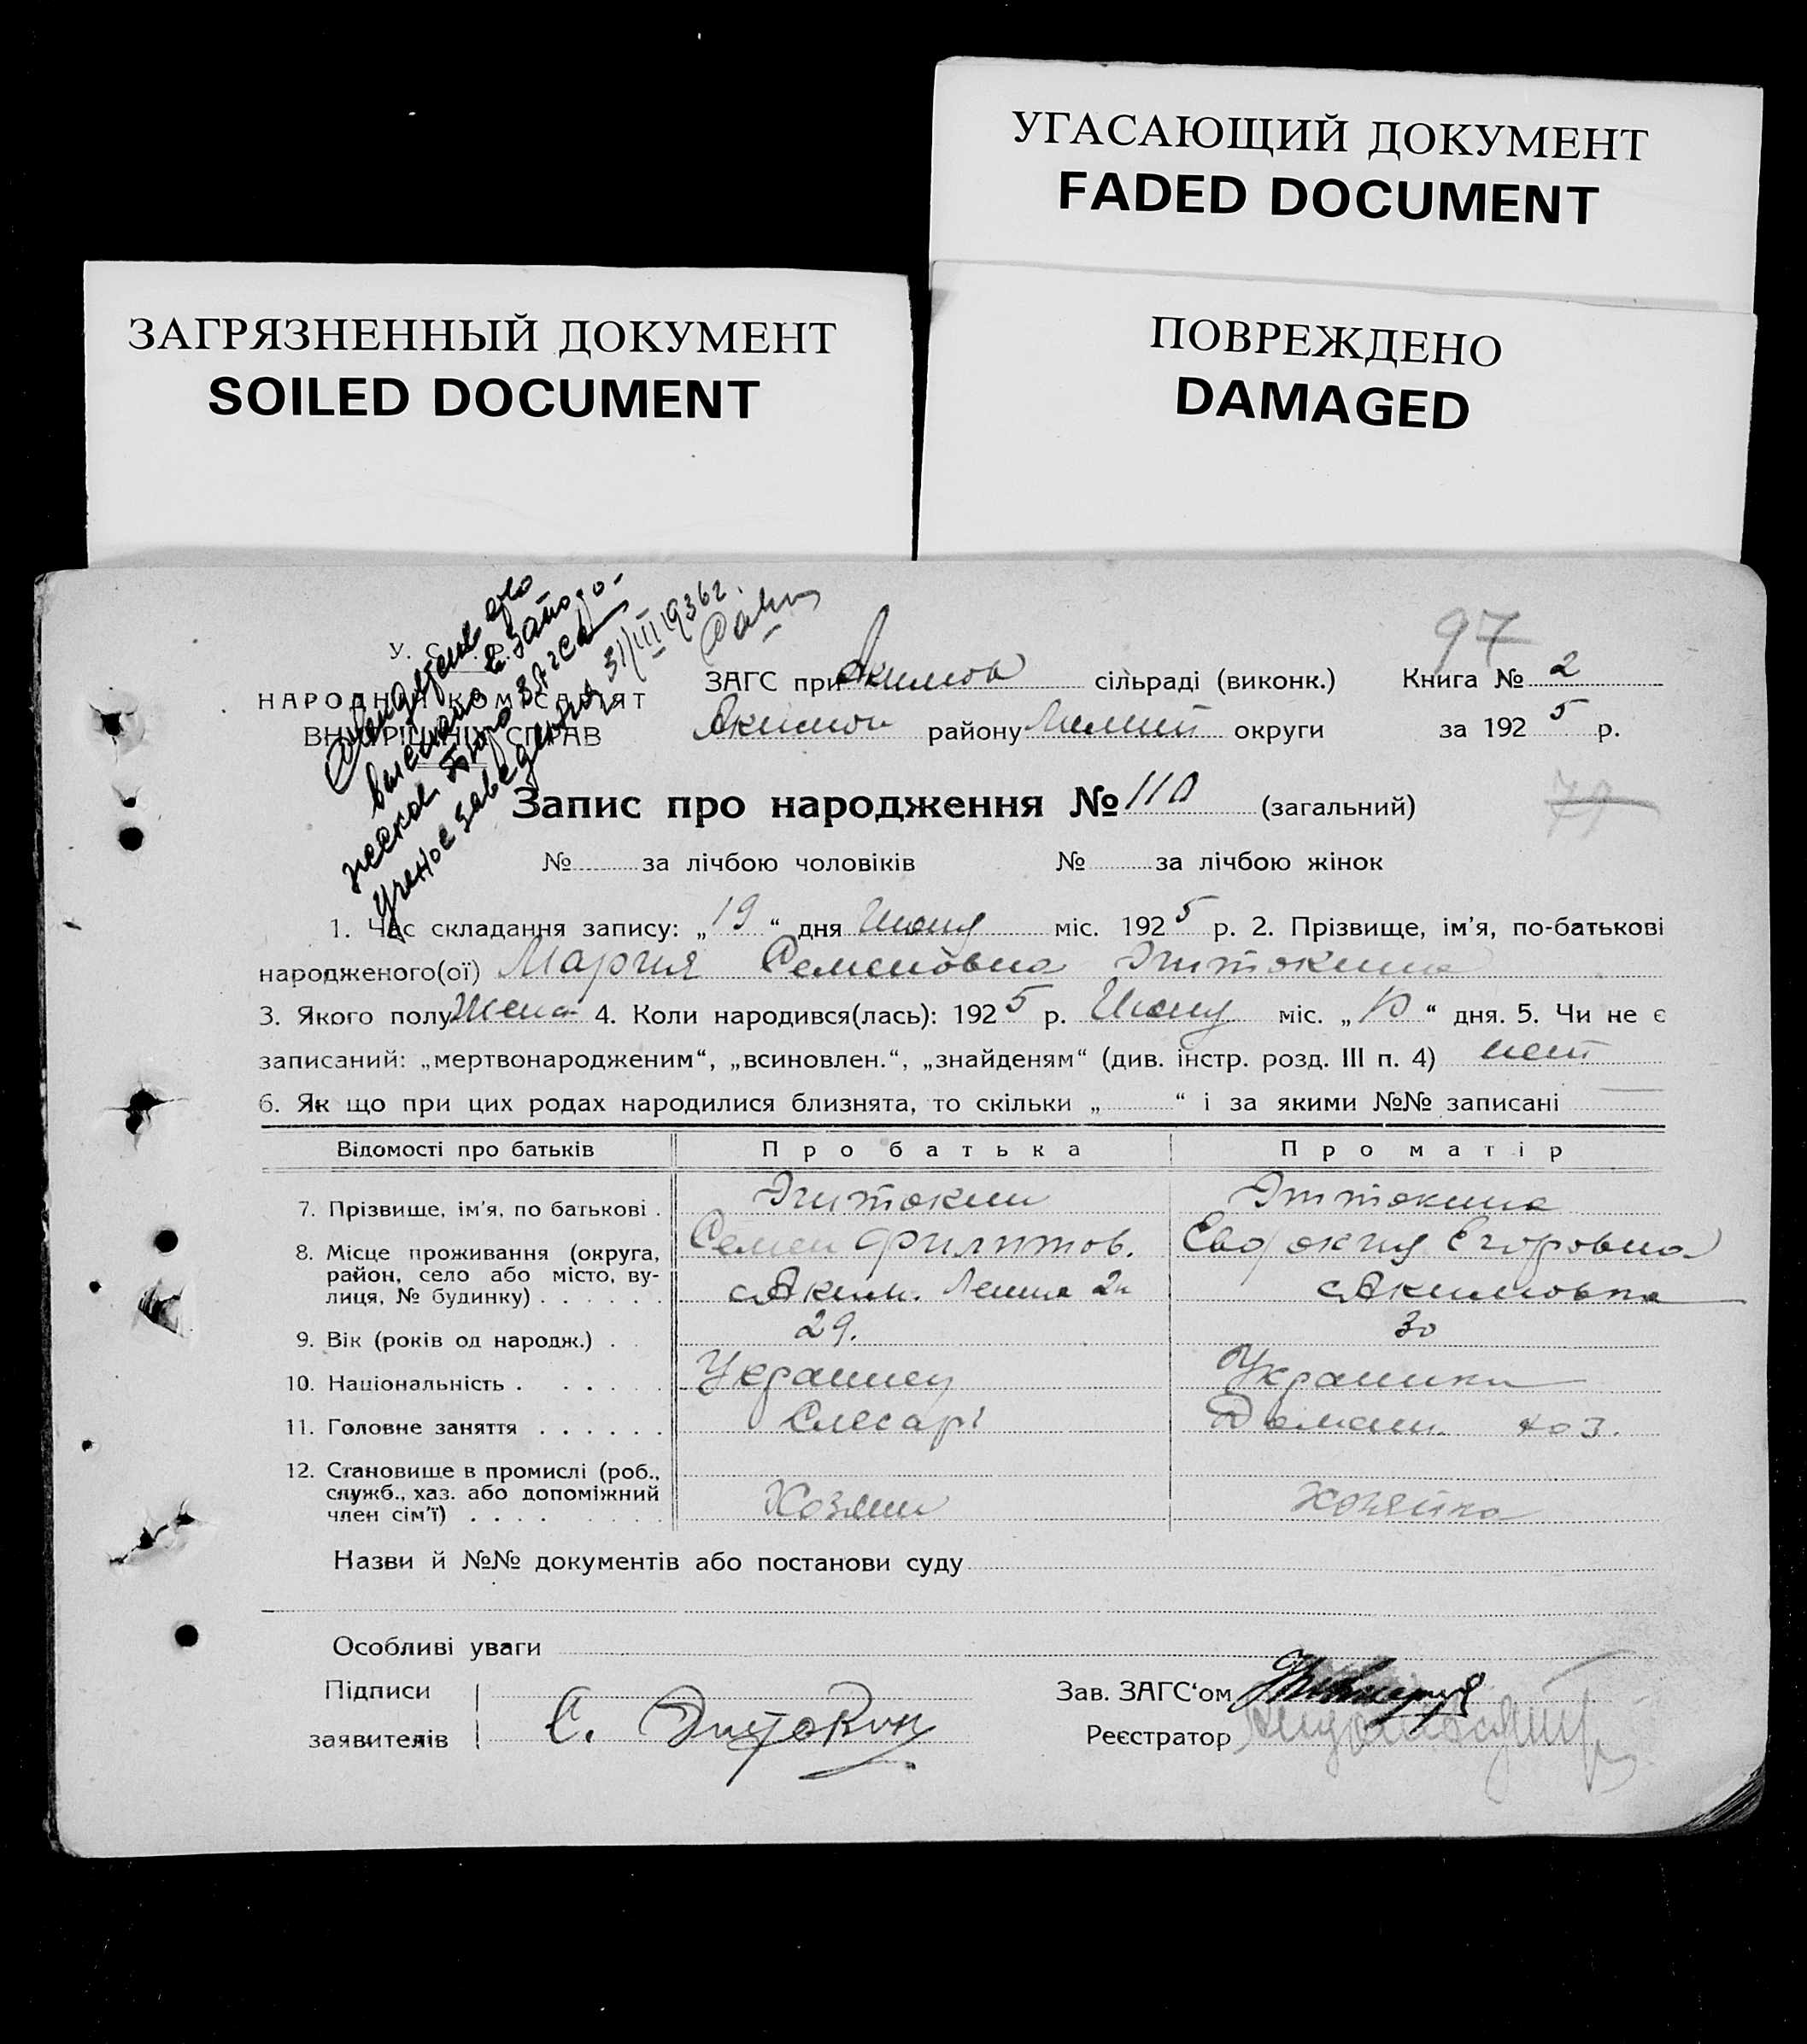 УГАСАЮЩИЙ ДОКУМЕНТ
FADED DOCUMENT
ЗАГРЯЗНЕННЫЙ ДОКУМЕНТ
SOILED DOCUMENT
ПОВРЕЖДЕНО
DAMAGED
выслано в Запо-
рожское Бюро ЗАГСа
31/III 1936 г.
97
У. С. Р. Р.
НАРОДНІЙ КОМІСАРІЯТ
ВНУТРІШНІХ СПРАВ
ЗАГС при Акимов сільраді (виконк.) Книга № 2
Акимов району Мелит округи за 1925 р.
Запис про народження № 110 (загальний)
79
№ за лічбою чоловіків № за лічбою жінок
1. Час складання запису: „19“ дня Июня міс. 1925 р. 2. Прізвище, ім'я, по-батькові
народженого(ої) Мария Семеновна
3. Якого полу Жен. 4. Коли народився(лась): 1925 р. Июня міс. „10“ дня. 5. Чи не є
записаний: „мертвонародженим“, „всиновлен.“, „знайденям“ (див. інстр. розд. III п. 4) нет
6. Як що при цих родах народилися близнята, то скільки „ “ і за якими №№ записані —
Відомості про батьків Про батька Про матір
7. Прізвище, ім'я, по батькові .
Семен Филиппов. Евдокия Егоровна
8. Місце проживання (округа,
район, село або місто, ву-
лиця, № будинку) . . . . . . с Аким. Ленина с Акимовка
9. Вік (років од народж.) . . 29. 30
10. Національність . . . . . Украинец Украинка
11. Головне заняття . . . . . . Слесарь Домаш. хоз.
12. Становище в промислі (роб.,
служб., хаз. або допоміжний
член сім'ї) . . . . . . . . Хозяин Хозяйка
Назви й №№ документів або постанови суду
Особливі уваги
Підписи
заявителів С.
Зав. ЗАГС'ом
Реєстратор